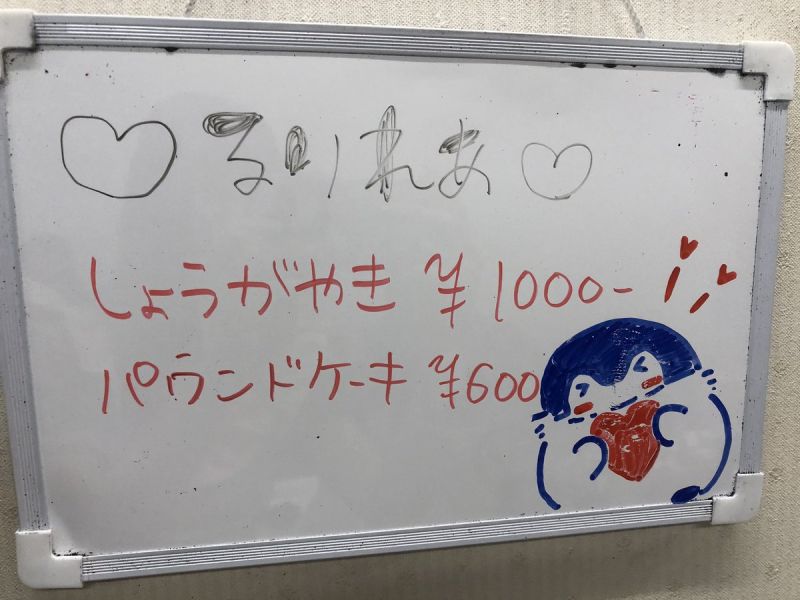 ♡るりれあ♡
しょうがやき ¥1000-
パウンドケーキ ¥600